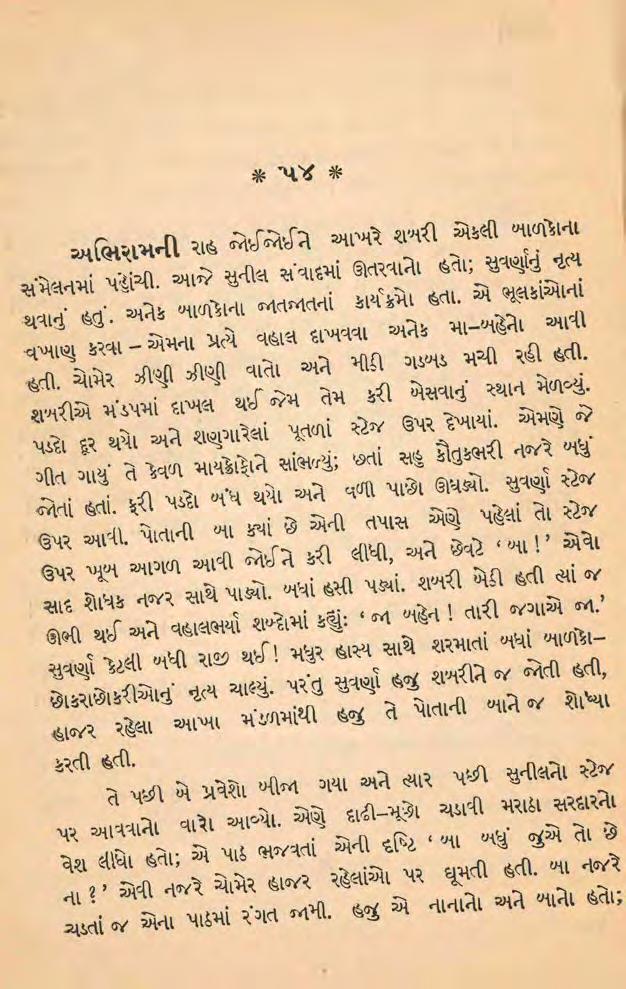 * ૫૪ *
અભિરામની રાહ જોઈજોઈને આખરે શબરી એકલી બાળકોના
સંમેલનમાં પહોંચી. આજે સુનીલ સંવાદમાં ઊતરવાનો હતો; સુવર્ણાનું નૃત્ય
થવાનું હતું. અનેક બાળકોના જાતજાતનાં કાર્યક્રમો હતા. એ ભૂલકાંઓનાં
વખાણ કરવા – એમના પ્રત્યે વહાલ દાખવવા અનેક મા-બહેનો આવી
હતી. ચોમેર ઝીણી ઝીણી વાતો અને મીઠી ગડબડ મચી રહી હતી.
શબરીએ મંડપમાં દાખલ થઈ જેમ તેમ કરી બેસવાનું સ્થાન મેળવ્યું.
પડદો દૂર થયો અને શણગારેલાં પૂતળાં સ્ટેજ ઉપર દેખાયાં. એમણે જે
ગીત ગાયું તે કેવળ માયક્રોફોને સાંભળ્યું; છતાં સહુ કૌતુકભરી નજરે બધું
જોતાં હતાં. ફરી પડદો બંધ થયો અને વળી પાછો ઊઘડ્યો. સુવર્ણા સ્ટેજ
ઉપર આવી. પોતાની બા ક્યાં છે એની તપાસ એણે પહેલાં તો સ્ટેજ
ઉપર ખૂબ આગળ આવી જોઈને કરી લીધી, અને છેવટે ‘બા!’ એવો
સાદ શોધક નજર સાથે પાડ્યો. બધાં હસી પડ્યાં. શબરી બેઠી હતી ત્યાં જ
ઊભી થઈ અને વહાલભર્યા શબ્દોમાં કહ્યું: ‘જા બહેન! તારી જગાએ જા.’
સુવર્ણા કેટલી બધી રાજી થઈ! મધુર હાસ્ય સાથે શરમાતાં બધાં બાળકો–
છોકરાછોકરીઓનું નૃત્ય ચાલ્યું. પરંતુ સુવર્ણા હજુ શબરીને જ જોતી હતી,
હાજર રહેલા આખા મંડળમાંથી હજુ તે પોતાની બાને જ શોધ્યા
કરતી હતી.
તે પછી બે પ્રવેશો બીજા ગયા અને ત્યાર પછી સુનીલનો સ્ટેજ
પર આવવાનો વારો આવ્યો. એણે દાઢી–મૂછો ચડાવી મરાઠા સરદારનો
વેશ લીધો હતો; એ પાઠ ભજવતાં એની દૃષ્ટિ ‘બા બધું જુએ તો છે
ના?’ એવી નજરે ચોમેર હાજર રહેલાંઓ પર ઘૂમતી હતી. બા નજરે
ચડતાં જ એના પાઠમાં રંગત જામી. હજુ એ નાનો અને બાનો હતો;